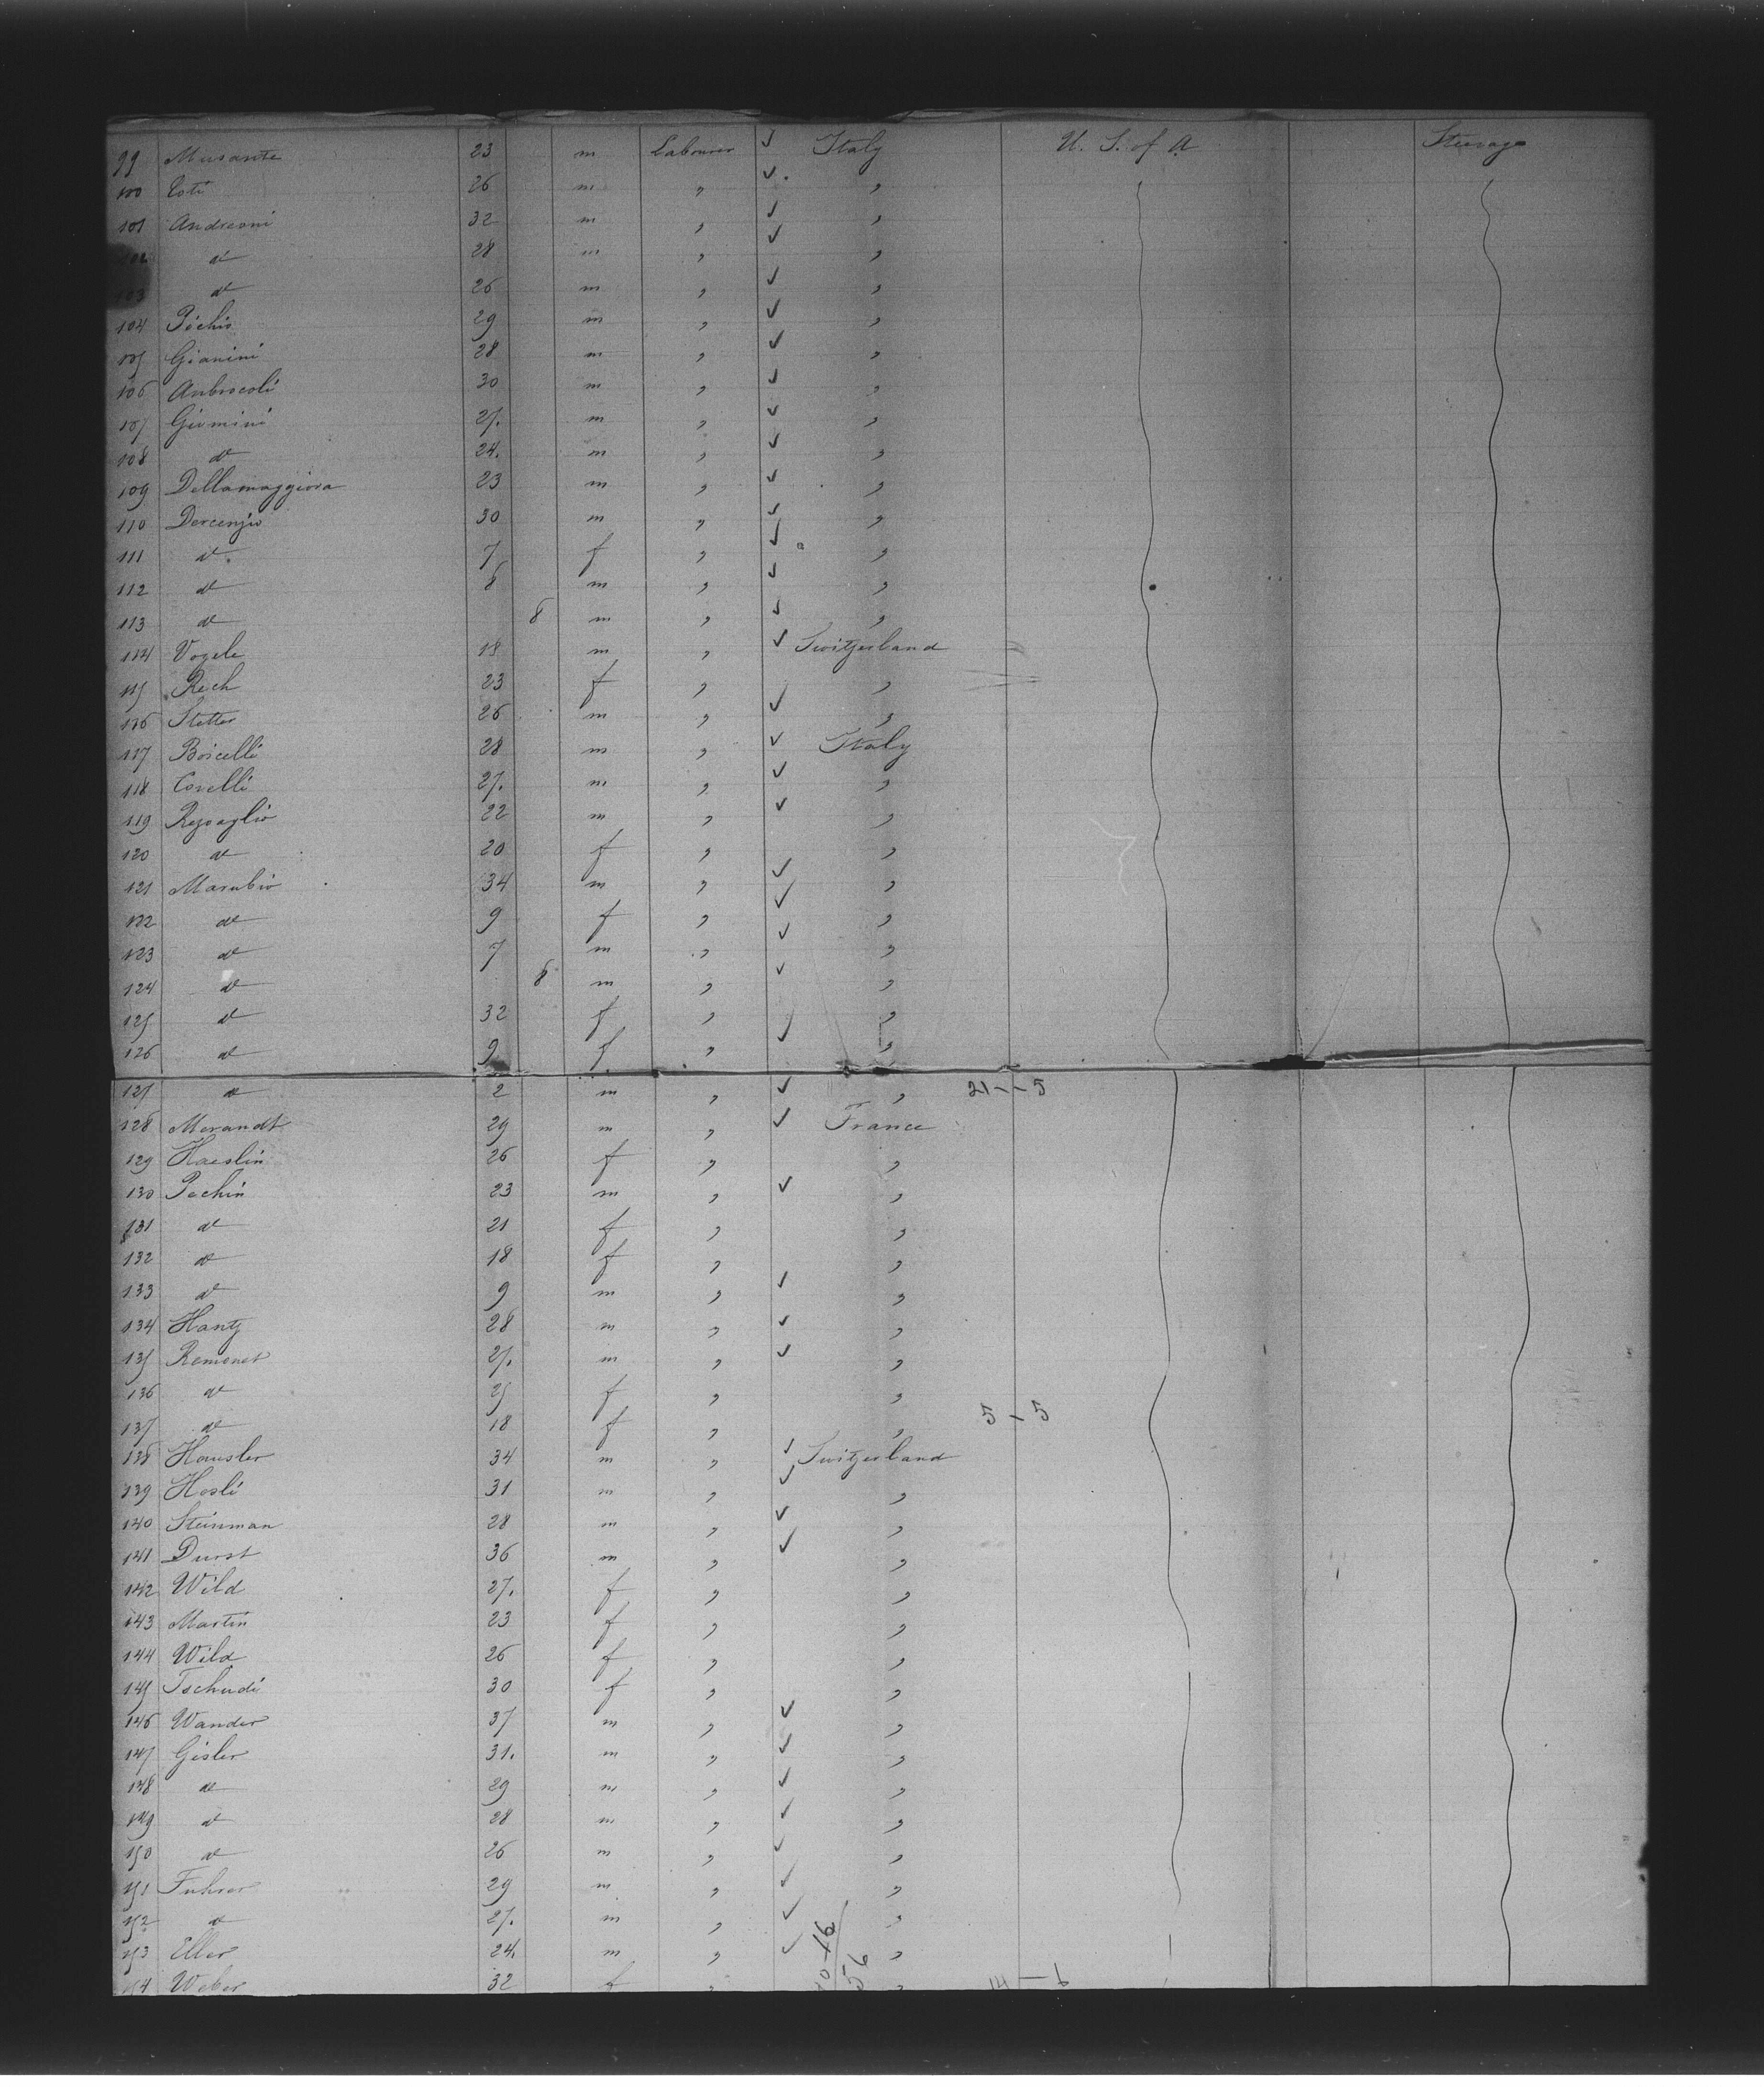 99 Musante 23 m Labourer ✓ Italy U. S. of A Steerage
100 Coti 26 m " ✓ "
101 Andreoni 32 m " ✓ "
102 do 28 m " ✓ "
103 do 26 m " ✓ "
104 Pochio 29 m " ✓ "
105 Gianini 28 m " ✓ "
106 Anbrocoli 30 m " ✓ "
107 Giomini 27. m " ✓ "
108 do 24. m " ✓ "
109 Dellamaggiora 23 m " ✓ "
110 Dercenzio 30 m " ✓ "
111 do 7 f " ✓ "
112 do 8 m " ✓ "
113 do 8 m " ✓ "
114 Vogele 18 m " ✓ Switzerland
115 Rech 23 f " "
116 Stetter 26 m " ✓ "
117 Boicelli 28 m " ✓ Italy
118 Corelli 27. m " ✓ "
119 Rezoaglio 22 m " ✓ "
120 do 20 f " "
121 Marubio 34 m " ✓ "
122 do 9 f " ✓ "
123 do 7 m " ✓ "
124 do 8 m " ✓ "
125 do 32 f " "
126 do 9 f " ✓ "
127 do 2 m " ✓ " 21--5
128 Morandt 29 m " ✓ France
129 Haeslin 26 f " "
130 Pochin 23 m " ✓ "
131 do 21 f " "
132 do 18 f " "
133 do 9 m " ✓ "
134 Hantz 28 m " ✓ "
135 Remonet 27. m " ✓ "
136 do 25 f " "
137 do 18 f " " 5-5
138 Hausler 34 m " ✓ Switzerland
139 Hosli 31 m " ✓ "
140 Steinman 28 m " ✓ "
141 Durst 36 m " ✓ "
142 Wild 27. f " "
143 Martin 23 f " "
144 Wild 26 f " "
145 Tschudi 30 f " "
146 Wander 37 m " ✓ "
147 Gisler 31. m " ✓ "
148 do 29 m " ✓ "
149 do 28 m " ✓ "
150 do 26 m " ✓ "
151 Fuhrer 29 m " ✓ "
152 do 27. m " ✓ "
153 Eller 24. m " ✓ "
154 Weber 32 f " "